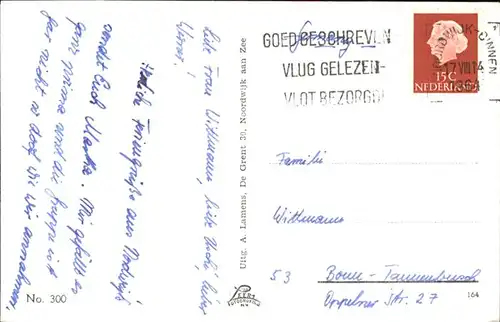 Liebe Frau Wittmann, liebe Uschi, lieber
Werner!
Herzliche Feriengrüße aus Nordwijk
sendet Euch Marlies. Mir gefällt es
ganz prima und die Gruppe ist
gar nicht so doof wie wir annahmen.
No. 300
Uitg. A. Lamens, De Grent 30, Noordwijk aan Zee
GOED GESCHREVEN
VLUG GELEZEN-
VLOT BEZORGD!
NOORDWIJK-BINNEN
17 VIII 14
15 C
NEDERLAND
Familie
Wittmann
53 Bonn-Tannenbusch
Oppelner Str. 27
164